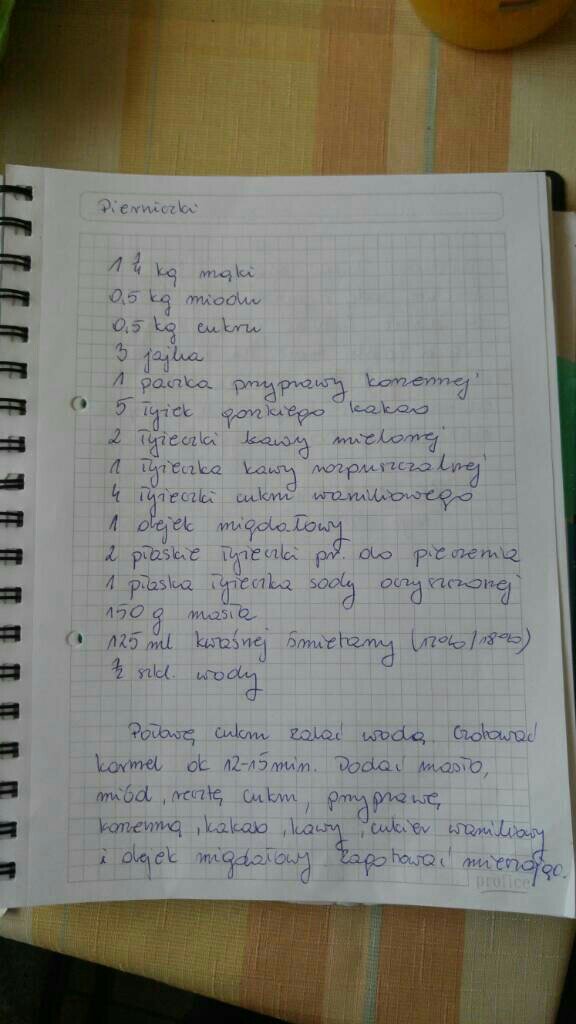 Pierniczki
1 1/4 kg mąki
0,5 kg miodu
0,5 kg cukru
3 jajka
1 paczka przyprawy korzennej
5 łyżek gorzkiego kakao
2 łyżeczki kawy mielonej
1 łyżeczka kawy rozpuszczalnej
4 łyżeczki cukru waniliowego
1 olejek migdałowy
2 płaskie łyżeczki pr. do pieczenia
1 płaska łyżeczka sody oczyszczonej
150 g masła
125 ml kwaśnej śmietany (12%/18%)
1/2 szkl. wody
Połowę cukru zalać wodą. Gotować
karmel ok 12-15 min. Dodać masło,
miód, resztę cukru, przyprawę
korzenną, kakao, kawy, cukier waniliowy
i olejek migdałowy zagotować mieszając.
profice